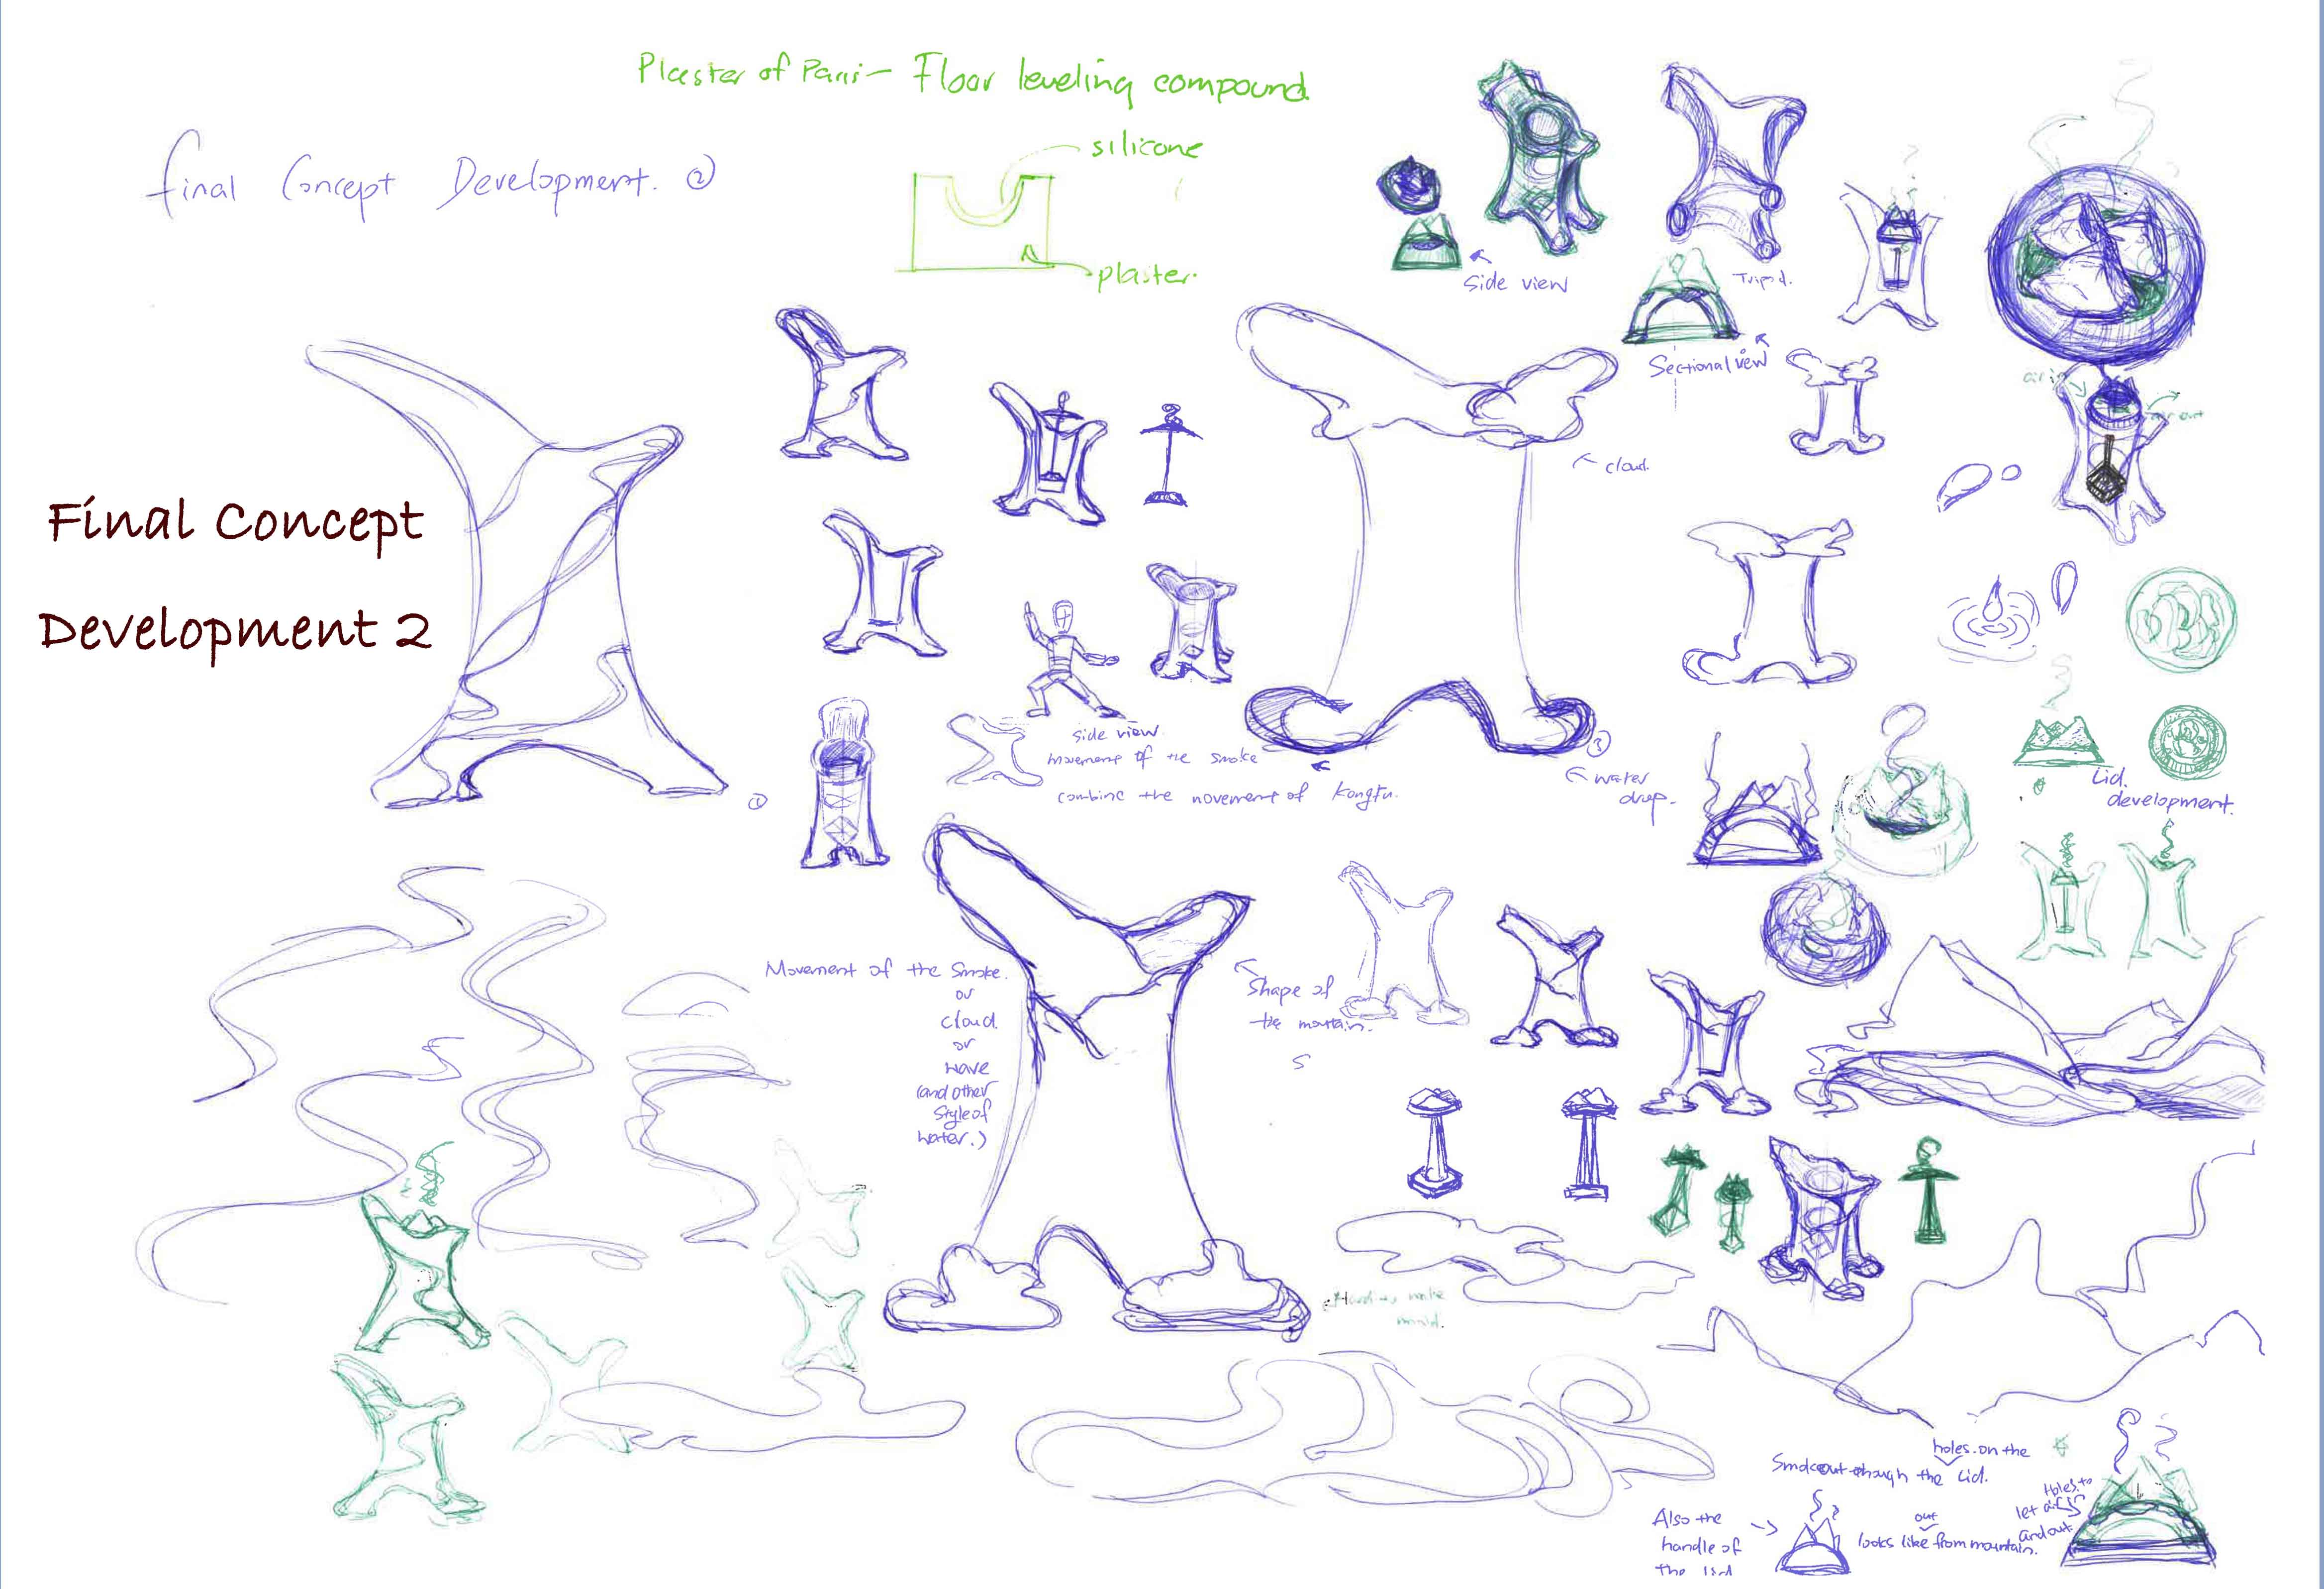 Plaster of Paris - Floor leveling compound
silicone
plaster.
final Concept Development. ②
Final Concept
Development 2
side view
Tripod.
Sectional view
air in
air out
cloud.
side view.
movement of the smoke
combine the movement of Kongfu.
①
③
water
drop.
Lid.
development.
Movement of the Smoke.
or
cloud.
or
wave
(and other
style of
water.)
Shape of
the mountain.
S
mold.
holes on the
Smoke out though the Lid.
Holes to
let air
and out
Also the
handle of
the lid
out
looks like from mountain.